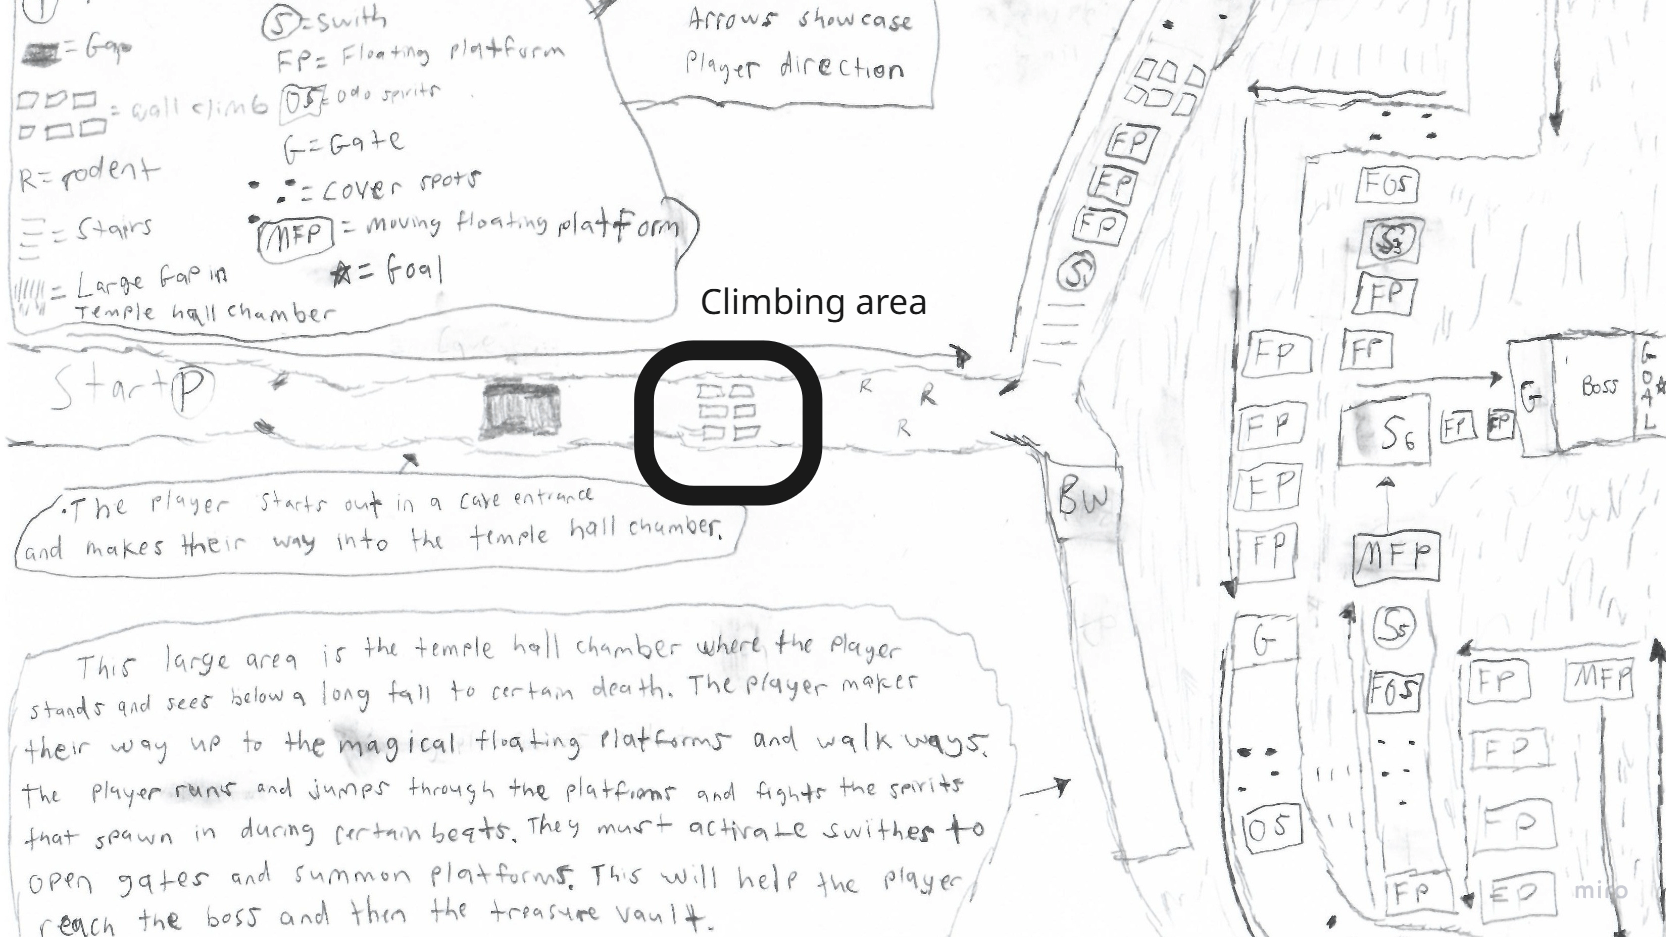 S = Swith
= Gap
FP = Floating platform
= wall climb
OS = Odo spirits
G = Gate
R = rodent
= cover spots
= Stairs
MFP = Moving floating platform
= Goal
= Large Gap in
Temple hall chamber
Arrows showcase
Player direction
Climbing area
Start P
R
R
R
·The player starts out in a cave entrance
and makes their way into the temple hall chamber.
This large area is the temple hall chamber where the player
stands and sees below a long fall to certain death. The player makes
their way up to the magical floating platforms and walk ways.
The player runs and jumps through the platfroms and fights the spirits
that spawn in during certain beats. They must activate swithes to
open gates and summon platforms. This will help the player
reach the boss and then the treasure vault.
FP
FP
FP
S
BW
FOS
S3
FP
FP
FP
FP
FP
FP
S6
FP
FP
G
Boss
GOAL
MFP
G
S5
FOS
OS
FP
FP
MFP
FP
FP
FP
miro